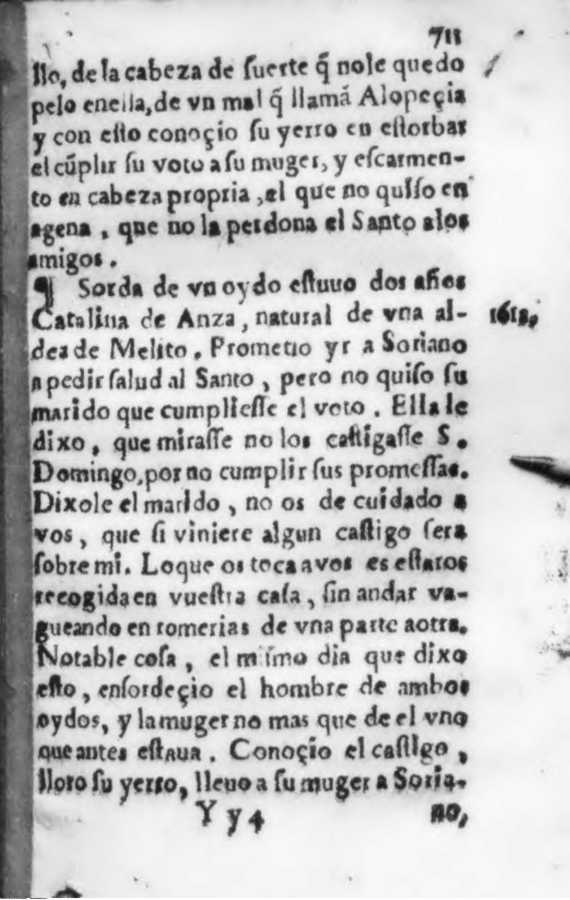 711
llo, de la cabeza de suerte q̃ nole quedo
pelo enella, de vn mal q̃ llamã Alopeçia
y con esto conoçio su yerro en estorbar
el cũplir su voto a su muger, y escarmen-
to en cabeza propria, el que no quiso en
agena, que no la perdona el Santo alos
amigos.
¶ Sorda de vn oydo estuuo dos años
Catalina de Anza, natural de vna al-
dea de Melito. Prometio yr a Soriano
a pedir salud al Santo, pero no quiso su
marido que cumpliesse el voto. Ella le
dixo, que mirasse no los castigasse S.
Domingo, por no cumplir sus promessas.
Dixole el marido, no os de cuidado a
vos, que si viniere algun castigo sera
sobre mi. Loque os toca a vos es estaros
recogida en vuestra casa, sin andar va-
gueando en romerias de vna parte aotra.
Notable cosa, el mismo dia que dixo
esto, ensordeçio el hombre de ambos
oydos, y la muger no mas que de el vno
que antes estaua. Conoçio el castigo,
lloro su yerro, lleuo a su muger a Soria-
Y y 4
no,